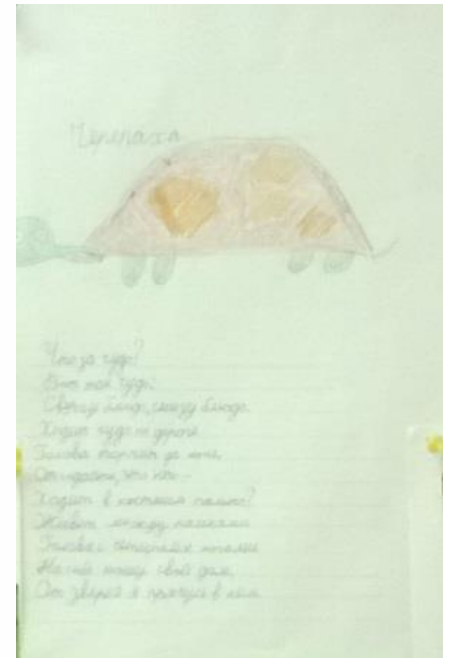 Черепаха
Что за чудо?
Вот так чудо:
Сверху блюдо, снизу блюдо.
Ходит чудо по дороге
Голова торчит да ноги.
Отгадайте, это кто –
Ходит в костяном пальто?
Живет между камнями
Голова с четырьмя ногами
На себе ношу свой дом,
От зверей я прячусь в нем